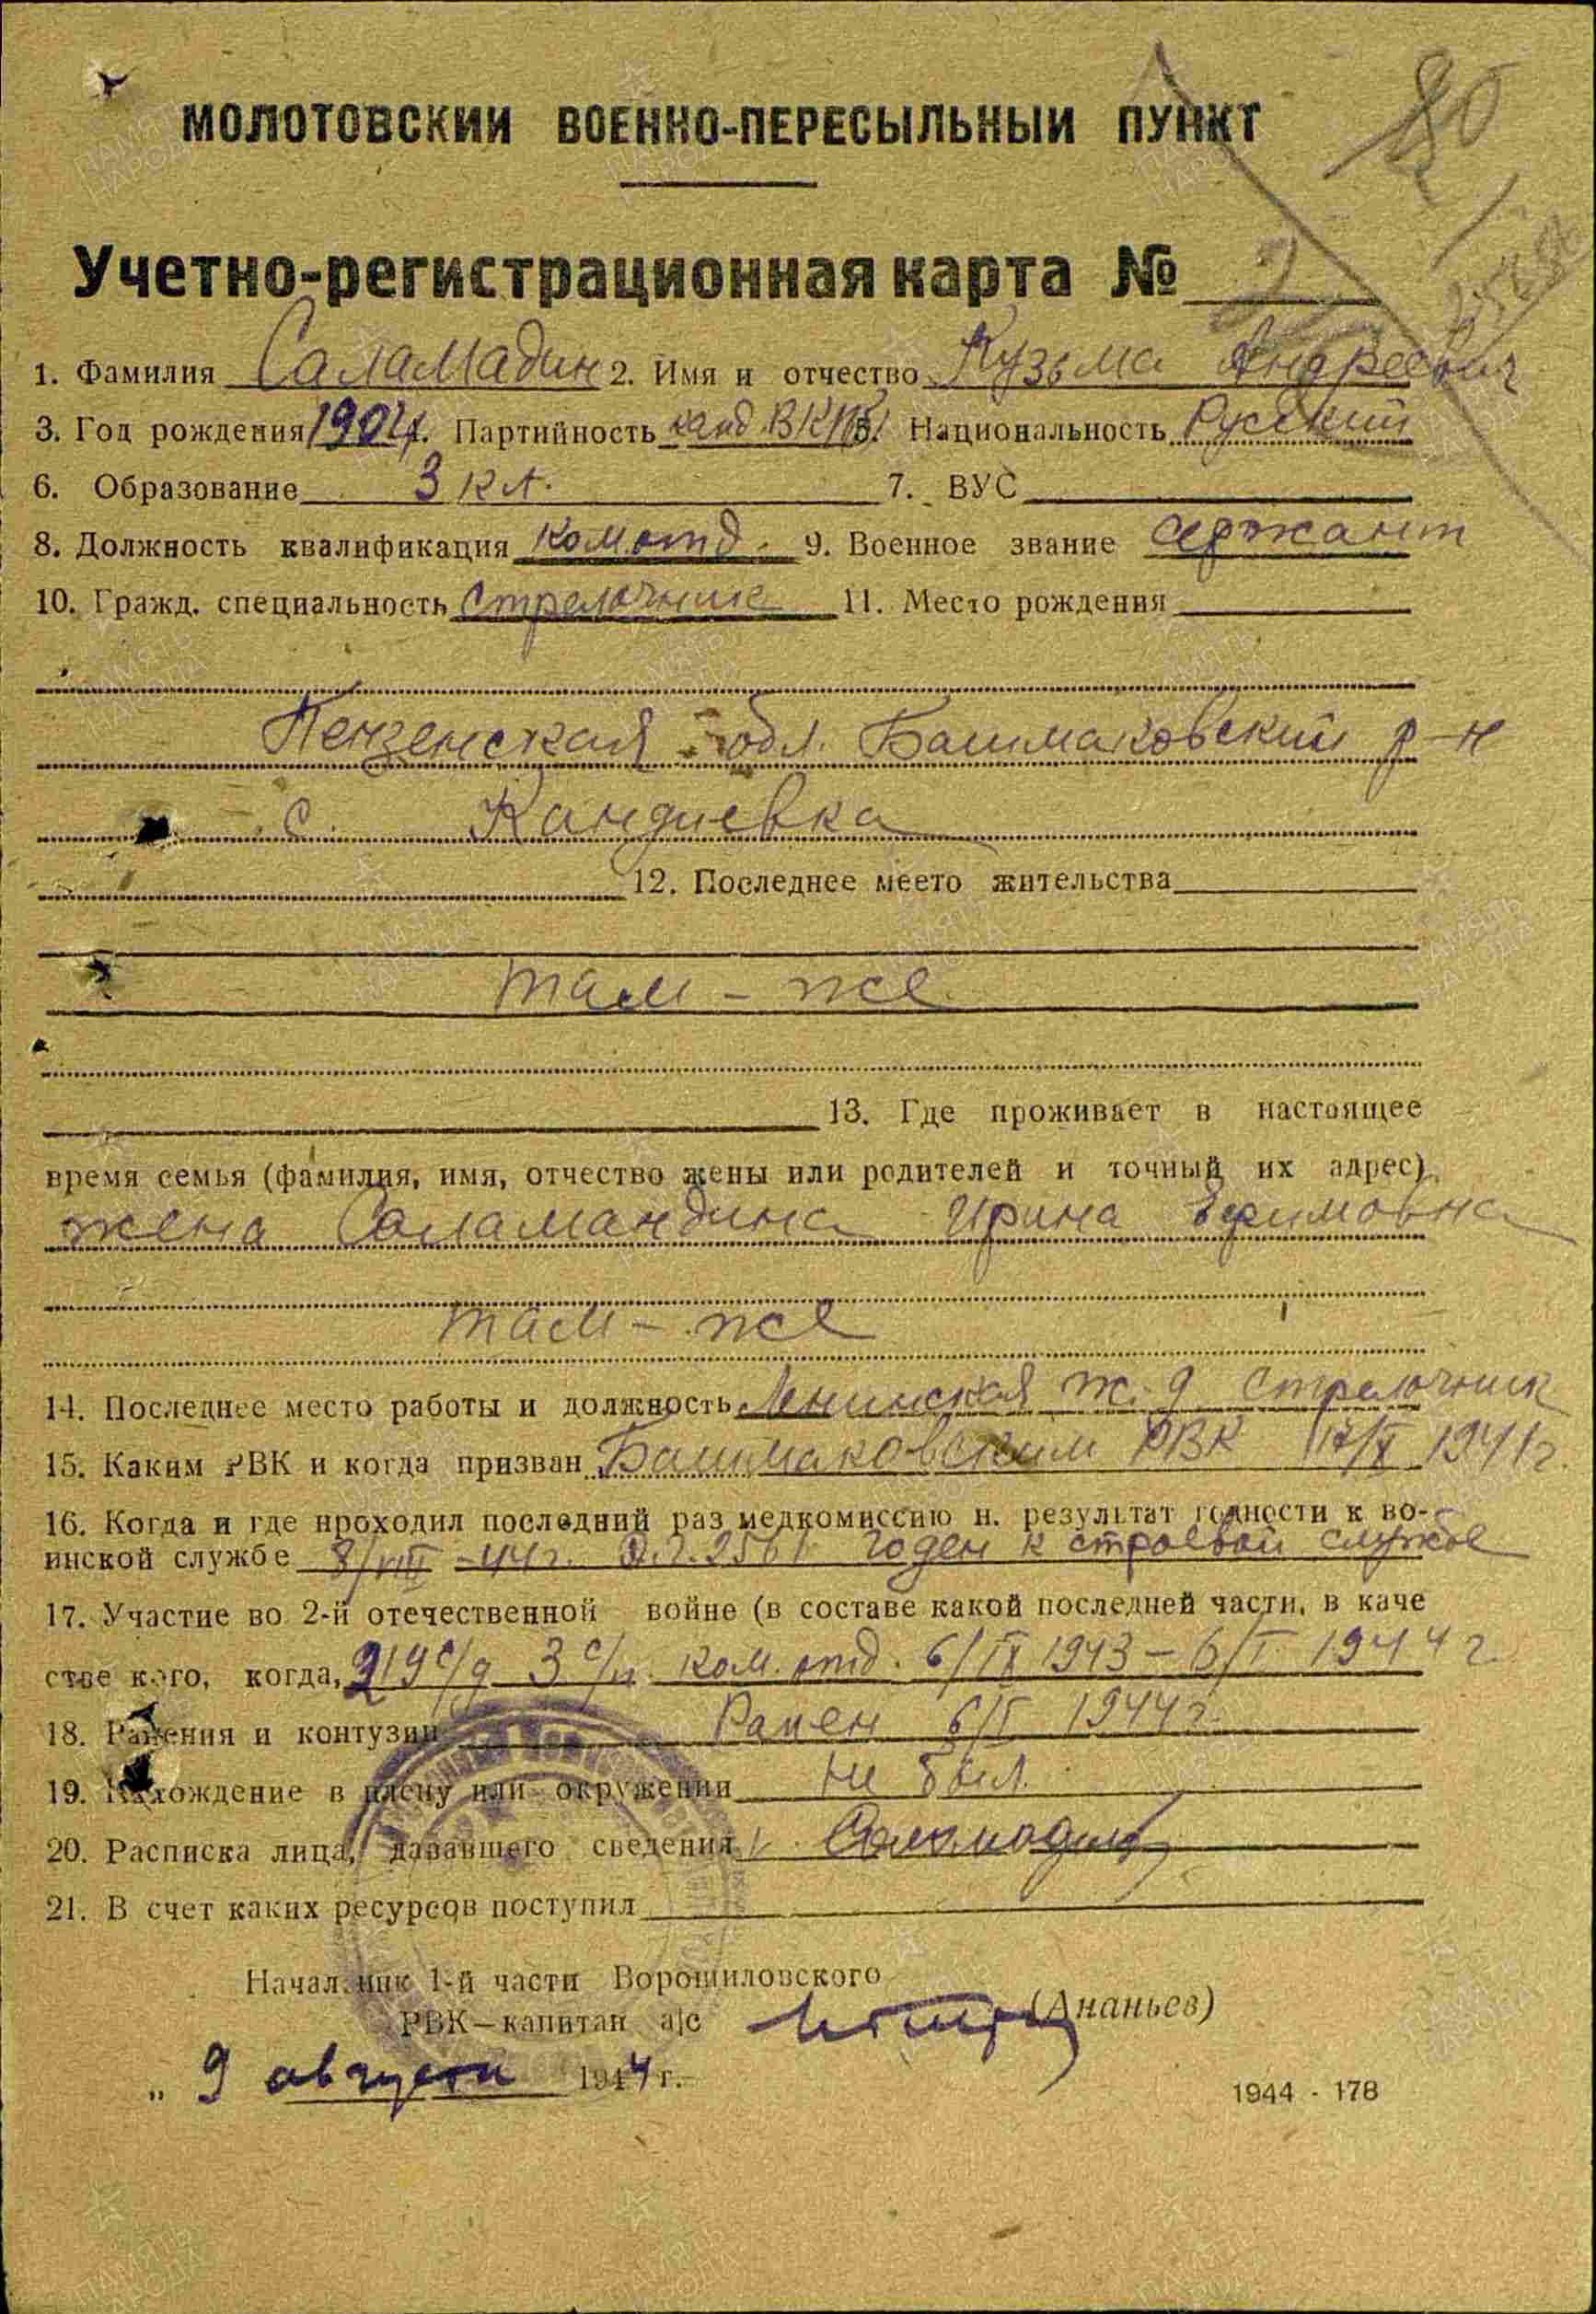 МОЛОТОВСКИЙ ВОЕННО-ПЕРЕСЫЛЬНЫЙ ПУНКТ
Учетно-регистрационная карта №
1. Фамилия Саламадин 2. Имя и отчество Кузьма Андреевич
3. Год рождения 1904 4. Партийность канд. ВКП(б) 5. Национальность Русский
6. Образование 3 кл. 7. ВУС
8. Должность квалификация ком. отд. 9. Военное звание сержант
10. Гражд. специальность стрелочник 11. Место рождения
Пензенская обл. Башмаковский р-н
с. Кандиевка
12. Последнее место жительства
там-же
13. Где проживает в настоящее
время семья (фамилия, имя, отчество жены или родителей и точный их адрес)
жена Саламандина Ирина Ефимовна
там-же
14. Последнее место работы и должность Ленинская ж.д. стрелочник
15. Каким РВК и когда призван Башмаковским РВК 17/X 1941г.
16. Когда и где проходил последний раз медкомиссию и. результат годности к во-
инской службе 8/VIII-44г. годен к строевой службе
17. Участие во 2-й отечественной войне (в составе какой последней части, в каче
стве кого, когда, 219 с/д 3 с/п. ком. отд. 6/IX 1943 - 6/I 1944 г.
18. Ранения и контузии Ранен 6/I 1944г.
19. Нахождение в плену или окружении не был
20. Расписка лица, дававшего сведения Саламадин
21. В счет каких ресурсов поступил
Начальник 1-й части Ворошиловского
РВК—капитан а|с (Ананьев)
„ 9 августа 1944 г.
1944 - 178